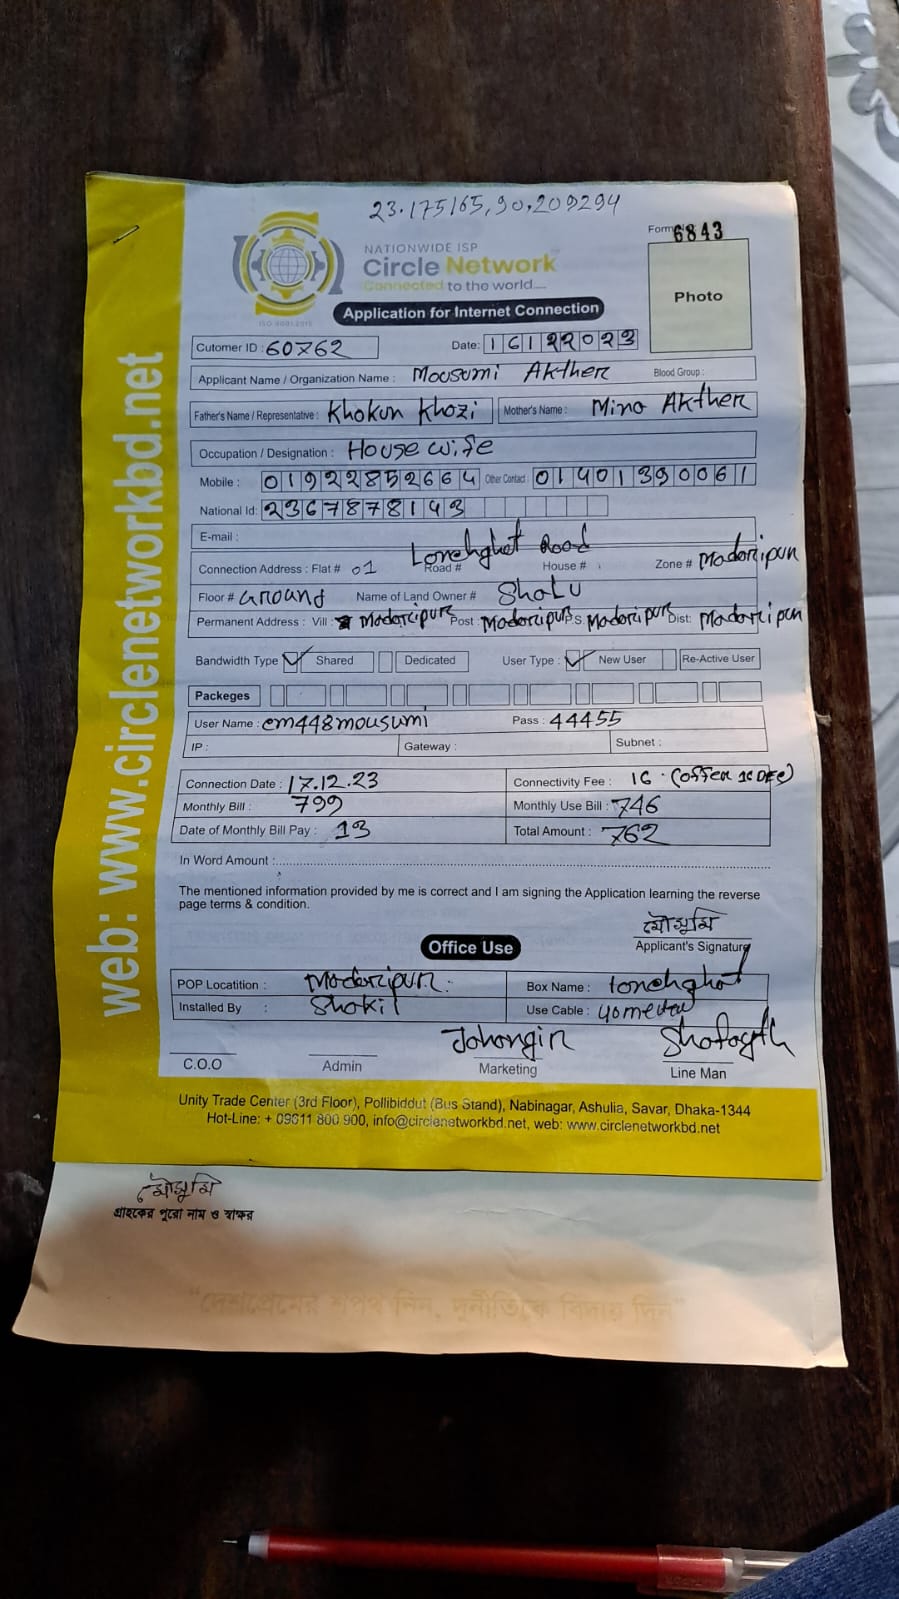 23.175165, 90.209294
Form 6843
NATIONWIDE ISP
Circle Network
Connected to the world....
ISO 9001:2015
Photo
Application for Internet Connection
Cutomer ID : 60762 Date: 16122023
Applicant Name / Organization Name : Mousumi Akther Blood Group :
Father's Name / Representative : Khokon Khozi Mother's Name : Mina Akther
Occupation / Designation : House wife
Mobile : 01922852664 Other Contact : 01401390061
National Id: 2367878143
E-mail :
Connection Address : Flat # 01 Road # Lonchghat Road House # Zone # Madaripur
Floor # Ground Name of Land Owner # Shalu
Permanent Address : Vill : Madaripur Post : Madaripur P.S. Madaripur Dist: Madaripur
Bandwidth Type ✓ Shared Dedicated User Type : ✓ New User Re-Active User
Packeges
User Name : cm448mousumi Pass : 44455
IP : Gateway : Subnet :
Connection Date : 17.12.23 Connectivity Fee : 16 (offer 16 Dec)
Monthly Bill : 799 Monthly Use Bill : 746
Date of Monthly Bill Pay : 13 Total Amount : 762
In Word Amount :
The mentioned information provided by me is correct and I am signing the Application learning the reverse
page terms & condition.
মৌসুমি
Applicant's Signature
Office Use
POP Locatition : Madaripur. Box Name : lonchghat
Installed By : Shakil Use Cable : 40 meter
Jahangir
C.O.O Admin Marketing Line Man
Unity Trade Center (3rd Floor), Pollibiddut (Bus Stand), Nabinagar, Ashulia, Savar, Dhaka-1344
Hot-Line: + 09611 800 900, info@circlenetworkbd.net, web: www.circlenetworkbd.net
web: www.circlenetworkbd.net
মৌসুমি
গ্রাহকের পুরো নাম ও স্বাক্ষর
"দেশপ্রেমের শপথ নিন, দুর্নীতিকে বিদায় দিন"